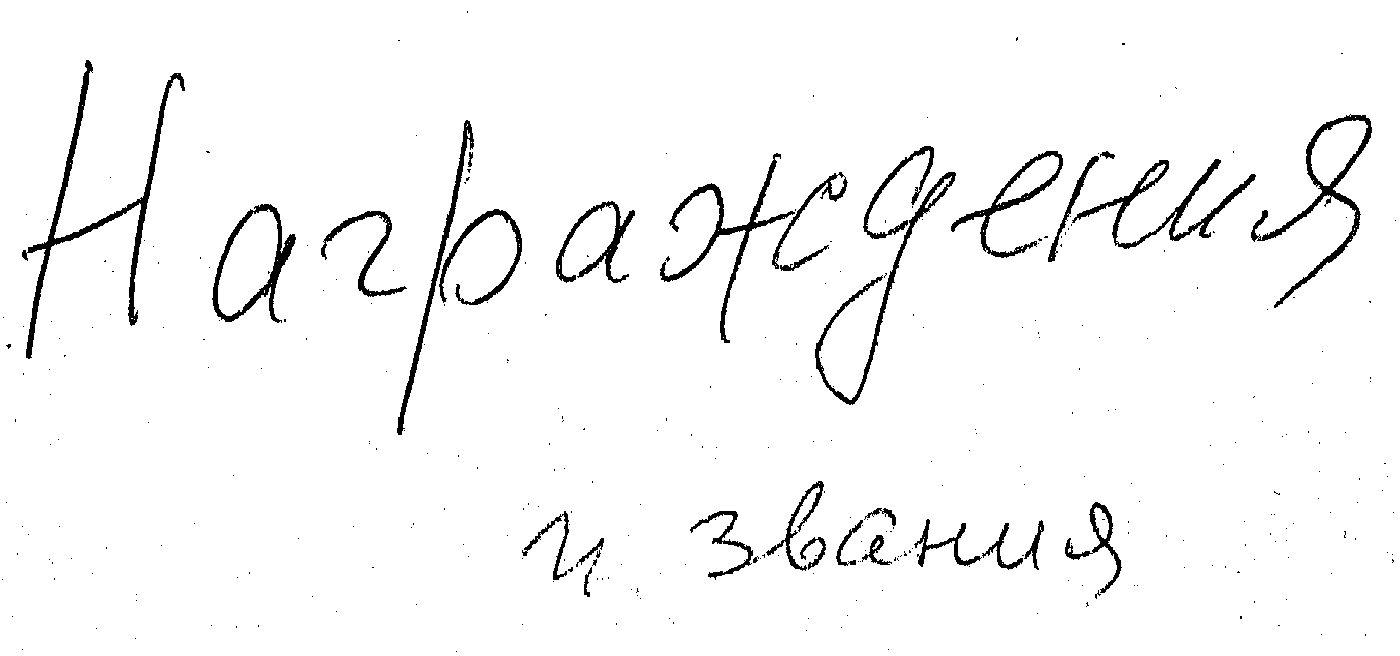 Награждения
и звания